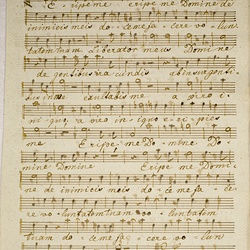 Eripe me eripe me Domine de
inimicis meis doce me facere volun
tatem tuam Liberator meus Domine
de gentibus iracundis ab insurgenti
bus in me exaltabis me a viro i
niquo, a viro iniquo eripies
me Eripe me Domine Do-
mine Domine Eripe me Domi
ne de inimicis meis doce me fa-ce-
re vo-luntatem tuam volun
tuam doce me facere volun